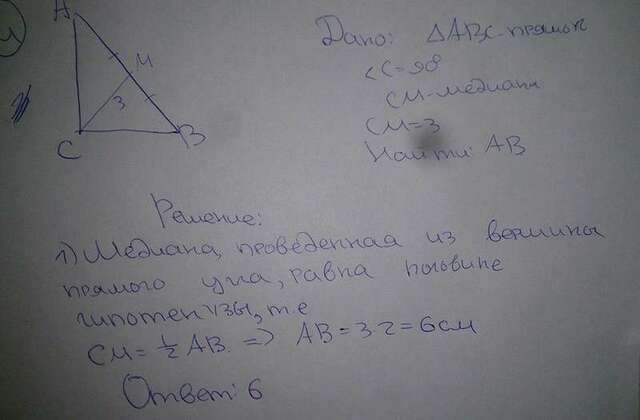 4
A
M
3
C
B
Дано: △ABC-прямоп
<C=90°
CM-медиана
CM=3
Найти: AB
Решение:
1) Медиана, проведенная из вершины
прямого угла, равна половине
гипотенузы, т.е
CM = 1/2 AB. => AB = 3·2 = 6см
Ответ: 6